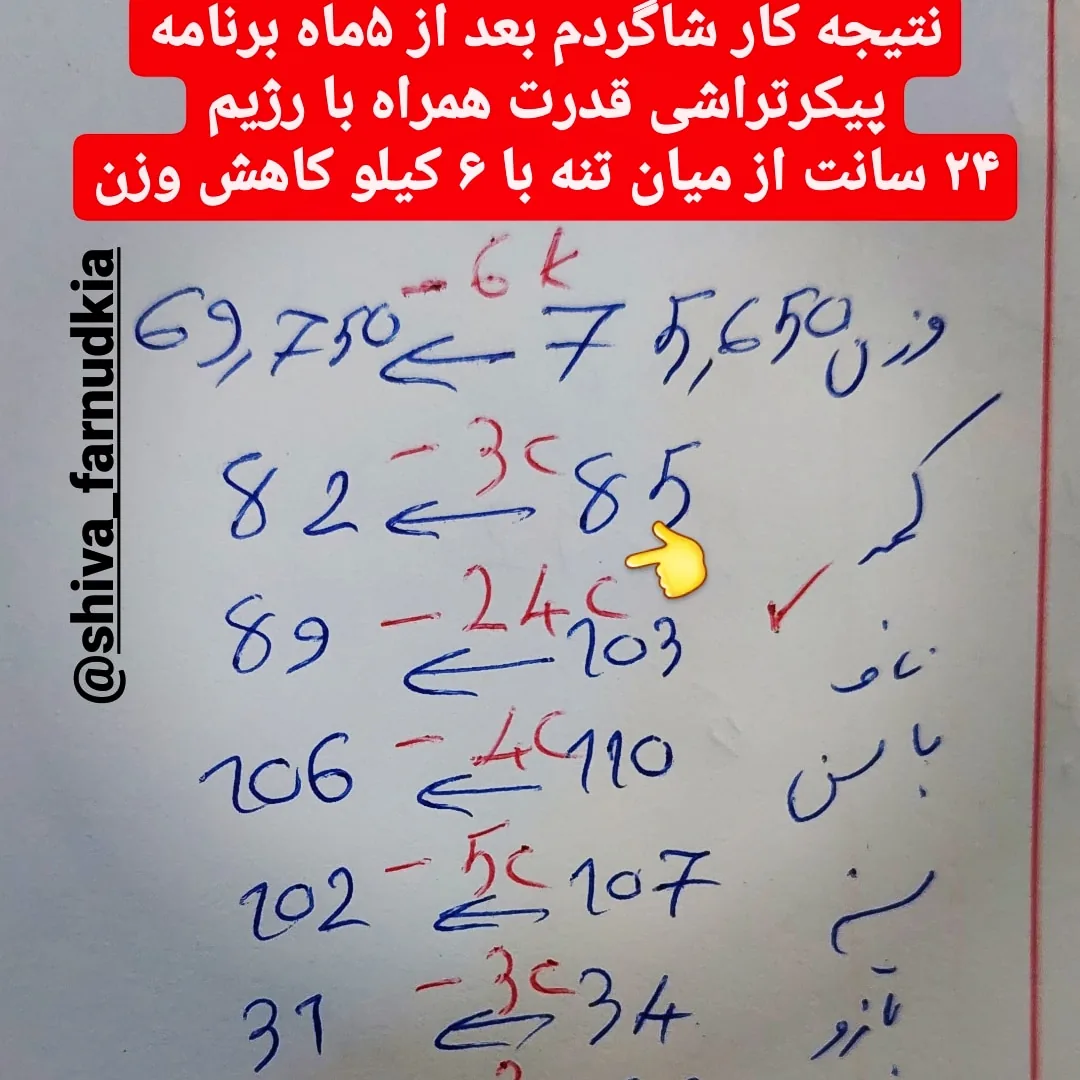 نتیجه کار شاگردم بعد از ۵ماه برنامه
پیکرتراشی قدرت همراه با رژیم
۲۴ سانت از میان تنه با ۶ کیلو کاهش وزن
@shiva_farnudkia
-6k
وزن 75,650 ← 69,750
-3c
کمر 85 ← 82
-24c
ناف 103 ← 89
-4c
باسن 110 ← 106
-5c
سینه 107 ← 102
-3c
بازو 34 ← 31